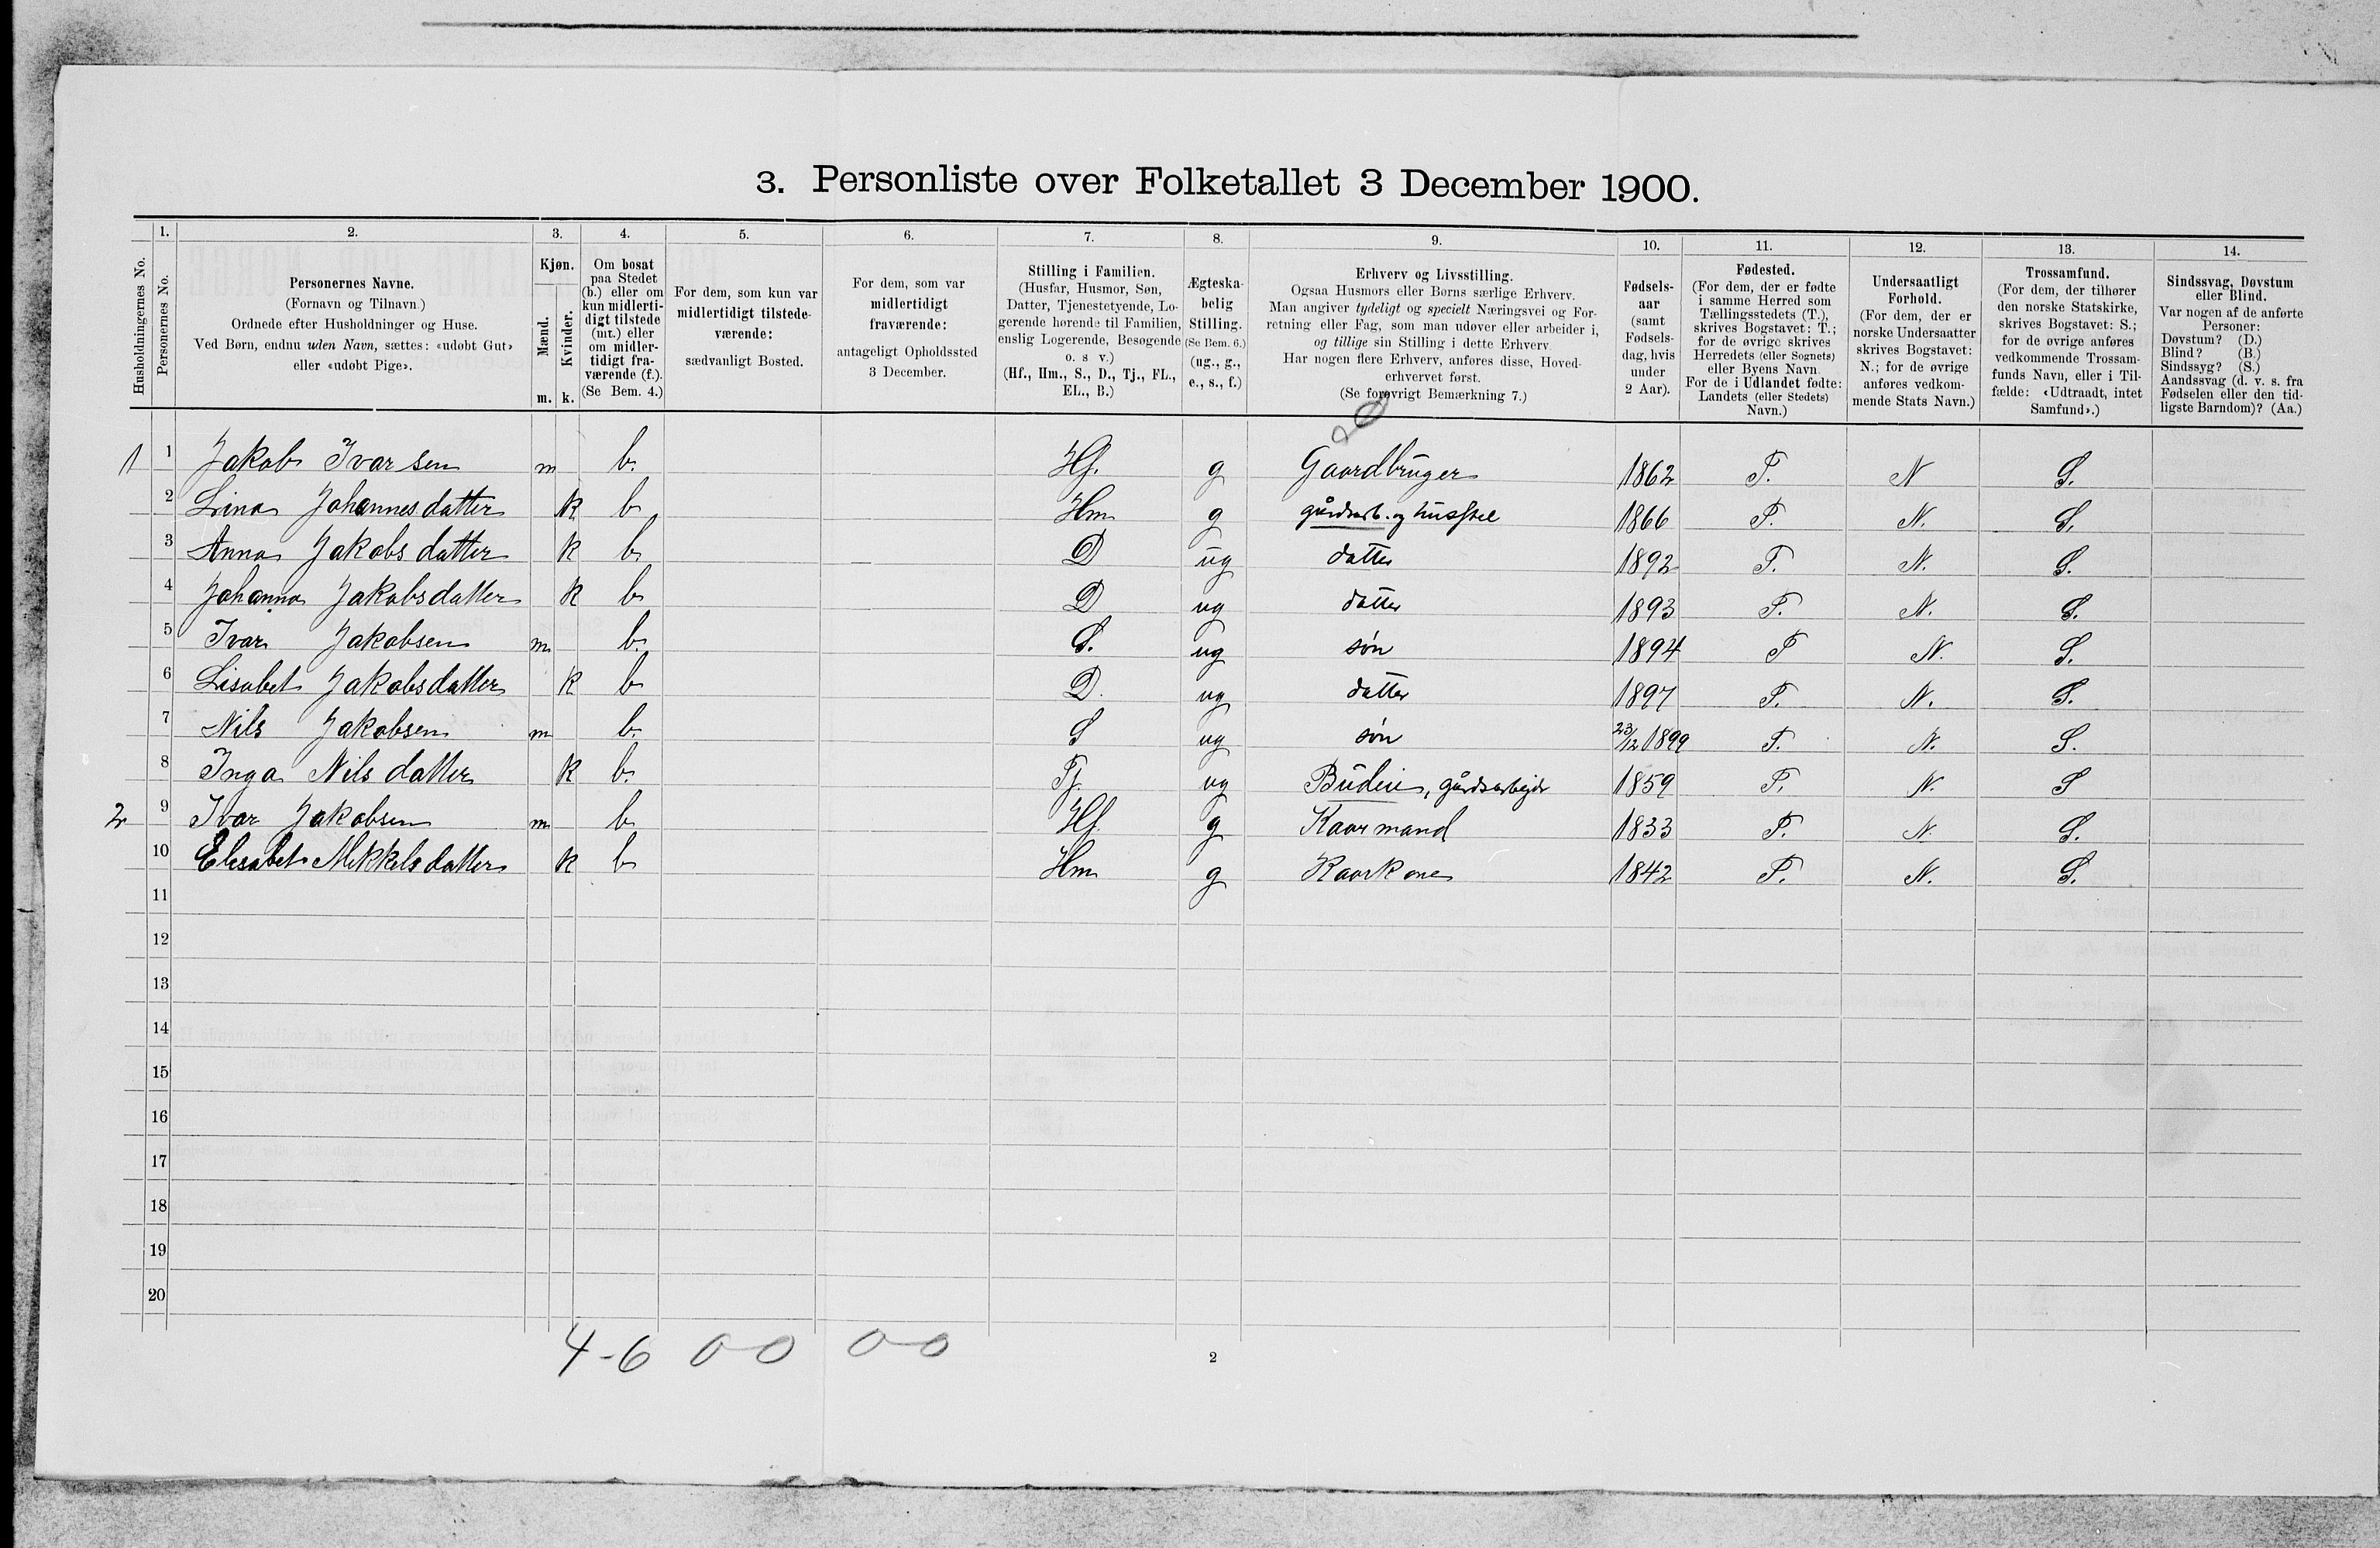 3. Personliste over Folketallet 3 December 1900.
1. 2. 3. 4. 5. 6. 7. 8. 9. 10. 11. 12. 13. 14.
Husholdningernes No.
Personernes No.
Personernes Navne.
(Fornavn og Tilnavn.)
Ordnede efter Husholdninger og Huse.
Ved Børn, endnu uden Navn, sættes: «udøbt Gut»
eller «udøbt Pige».
Kjøn.
Mænd.
Kvinder.
m. k.
Om bosat
paa Stedet
(b.) eller om
kun midlerti-
digt tilstede
(mt.) eller
om midler-
tidigt fra-
værende (f.).
(Se Bem. 4.)
For dem, som kun var
midlertidigt tilstede-
værende:
sædvanligt Bosted.
For dem, som var
midlertidigt
fraværende:
antageligt Opholdssted
3 December.
Stilling i Familien.
(Husfar, Husmor, Søn,
Datter, Tjenestetyende, Lo-
gerende hørende til Familien,
enslig Logerende, Besøgende
o. s v.)
(Hf., Hm., S., D., Tj., FL.,
EL., B.)
Ægteska-
belig
Stilling.
(Se Bem. 6.)
(ug., g.,
e., s., f.)
Erhverv og Livsstilling.
Ogsaa Husmors eller Børns særlige Erhverv.
Man angiver tydeligt og specielt Næringsvei og For-
retning eller Fag, som man udøver eller arbeider i,
og tillige sin Stilling i dette Erhverv.
Har nogen flere Erhverv, anføres disse, Hoved-
erhvervet først.
(Se forøvrigt Bemærkning 7.)
Fødsels-
aar
(samt
Fødsels-
dag, hvis
under
2 Aar).
Fødested.
(For dem, der er fødte
i samme Herred som
Tællingsstedets (T.),
skrives Bogstavet: T.;
for de øvrige skrives
Herredets (eller Sognets)
eller Byens Navn.
For de i Udlandet fødte:
Landets (eller Stedets)
Navn.)
Undersaatligt
Forhold.
(For dem, der er
norske Undersaatter
skrives Bogstavet:
N.; for de øvrige
anføres vedkom-
mende Stats Navn.)
Trossamfund.
(For dem, der tilhører
den norske Statskirke,
skrives Bogstavet: S.;
for de øvrige anføres
vedkommende Trossam-
funds Navn, eller i Til-
fælde: «Udtraadt, intet
Samfund».)
Sindssvag, Døvstum
eller Blind.
Var nogen af de anførte
Personer:
Døvstum? (D.)
Blind? (B.)
Sindssyg? (S.)
Aandssvag (d. v. s. fra
Fødselen eller den tid-
ligste Barndom)? (Aa.)
1 1 Jakob Ivarsen m b. Hf. g Gaardbruger 1862 T. N S.
2 Lina Johannesdatter k b. Hm g gårdsarb. og husstel 1866 T. N. S.
3 Anna Jakobsdatter k b. D ug datter 1892 T. N. S.
4 Johanna Jakobsdatter k b D ug datter 1893 T. N. S.
5 Ivar Jakobsen m b. S. ug søn 1894 T N. S.
6 Lisabet Jakobsdatter k b D. ug datter 1897 T. N. S.
7 Nils Jakobsen m b. S ug søn 23/12 1899 T. N. S.
8 Inga Nilsdatter k b. Tj. ug Budeie, gårdsarbejde 1859 T. N. S
2 9 Ivar Jakobsen m b Hf g Kaarmand 1833 T. N. S.
10 Elesabet Mikkelsdatter k b Hm g Kaarkone 1842 T. N. S.
11
12
13
14
15
16
17
18
19
20
4-6 0-0 0-0
2